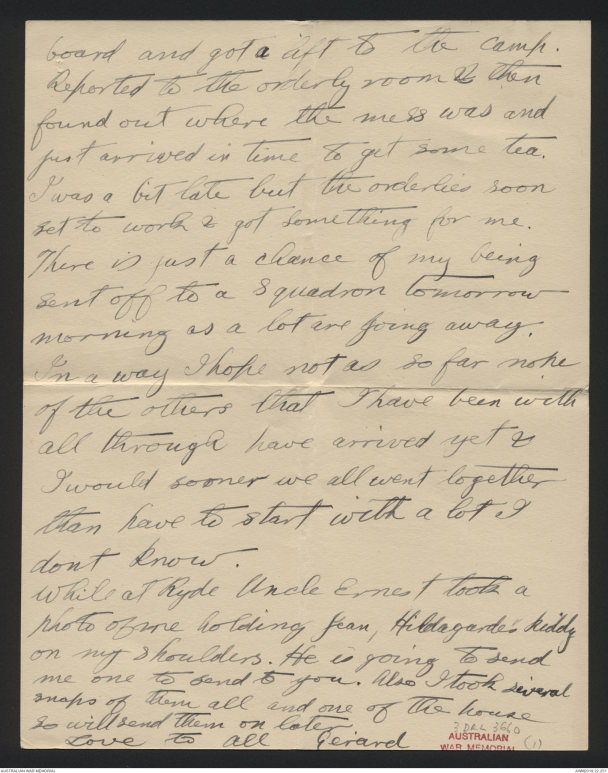 board and got a lift to the camp.
Reported to the orderly room & then
found out where the mess was and
just arrived in time to get some tea.
I was a bit late but the orderlies soon
set to work & got something for me.
There is just a chance of my being
sent off to a Squadron tomorrow
morning as a lot are going away.
In a way I hope not as so far none
of the others that I have been with
all through have arrived yet &
I would sooner we all went together
than have to start with a lot I
dont know.
While at Ryde Uncle Ernest took a
photo of me holding Jean, Hildagarde's kiddy
on my shoulders. He is going to send
me one to send to you. Also I took several
snaps of them all and one of the house
so will send them on later
Love to all Gerard
3 DRL 3660
AUSTRALIAN
WAR MEMORIAL (1)
AUSTRALIAN WAR MEMORIAL